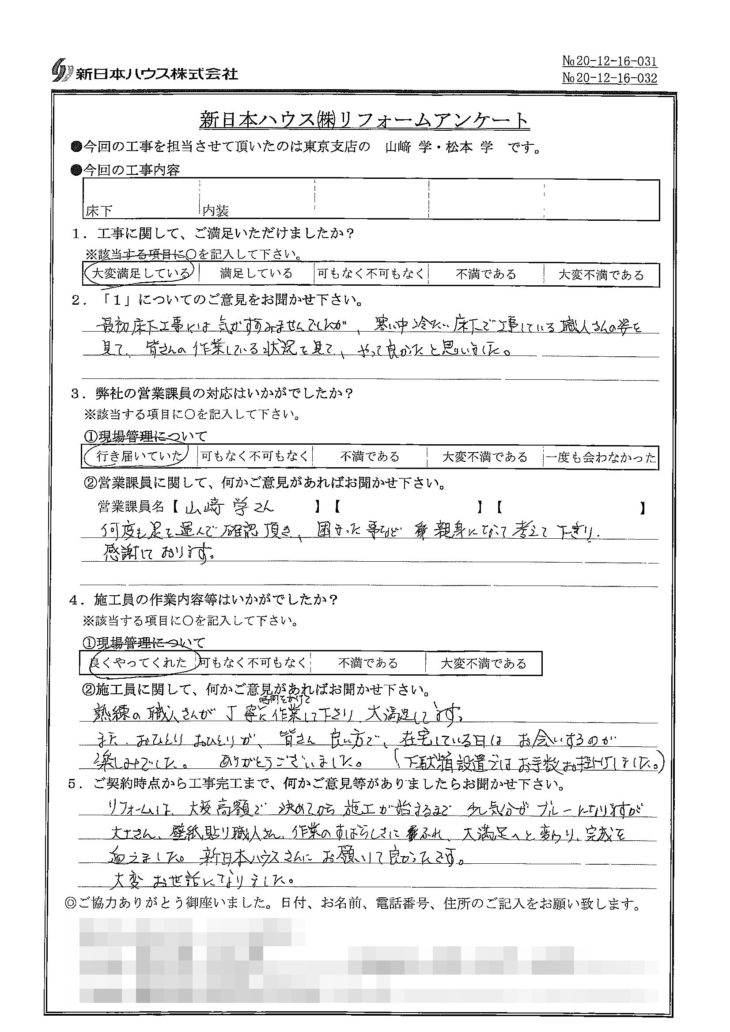 新日本ハウス株式会社
№20-12-16-031
№20-12-16-032
新日本ハウス㈱リフォームアンケート
●今回の工事を担当させて頂いたのは東京支店の 山﨑 学・松本 学 です。
●今回の工事内容
床下 内装
1．工事に関して、ご満足いただけましたか？
※該当する項目に○を記入して下さい。
大変満足している 満足している 可もなく不可もなく 不満である 大変不満である
2．「1」についてのご意見をお聞かせ下さい。
最初床下工事には気がすすみませんでしたが、寒い中冷たい床下で工事している職人さんの姿を
見て、皆さんの作業している状況を見て、やって良かったと思いました。
3．弊社の営業課員の対応はいかがでしたか？
※該当する項目に○を記入して下さい。
①現場管理について
行き届いていた 可もなく不可もなく 不満である 大変不満である 一度も会わなかった
②営業課員に関して、何かご意見があればお聞かせ下さい。
営業課員名【 山﨑 学さん 】【 】【 】
何度も足を運んで確認頂き、困った事など 親身になって考えて下さり、
感謝しております。
4．施工員の作業内容等はいかがでしたか？
※該当する項目に○を記入して下さい。
①現場管理について
良くやってくれた 可もなく不可もなく 不満である 大変不満である
②施工員に関して、何かご意見があればお聞かせ下さい。
時間をかけて
熟練の職人さんが丁寧に作業して下さり、大満足してます。
また、おひとりおひとりが、皆さん良い方で、在宅している日はお会いするのが
楽しみでした。ありがとうございました。（下駄箱設置ではお手数お掛けしました。）
5．ご契約時点から工事完工まで、何かご意見等がありましたらお聞かせ下さい。
リフォームは、大変高額で決めてから施工が始まるまで少し気分がブルーになりますが
大工さん、壁紙貼り職人さん、作業のすばらしさにふれ、大満足へと変わり、完成を
迎えました。新日本ハウスさんにお願いして良かったです。
大変お世話になりました。
◎ご協力ありがとう御座いました。日付、お名前、電話番号、住所のご記入をお願い致します。